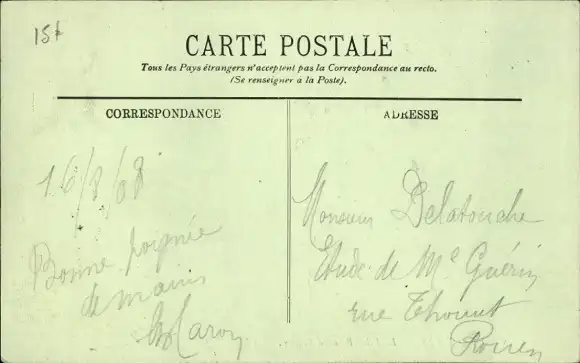 15f
CARTE POSTALE
Tous les Pays étrangers n'acceptent pas la Correspondance au recto.
(Se renseigner à la Poste).
CORRESPONDANCE
ADRESSE
16/8/08
Bonne poignée
de mains
Caron
Monsieur Delatouche
Etude de Me Guérin
rue Thouret
Rouen